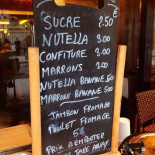 SUCRE 2.50
NUTELLA 3.00
CONFITURE 3.00
MARRONS 3.00
NUTELLA BANANE 5.00
MARRONS BANANE 5.00
JAMBON FROMAGE
POULET FROMAGE
5€
PRIX A EMPORTER
TAKE AWAY